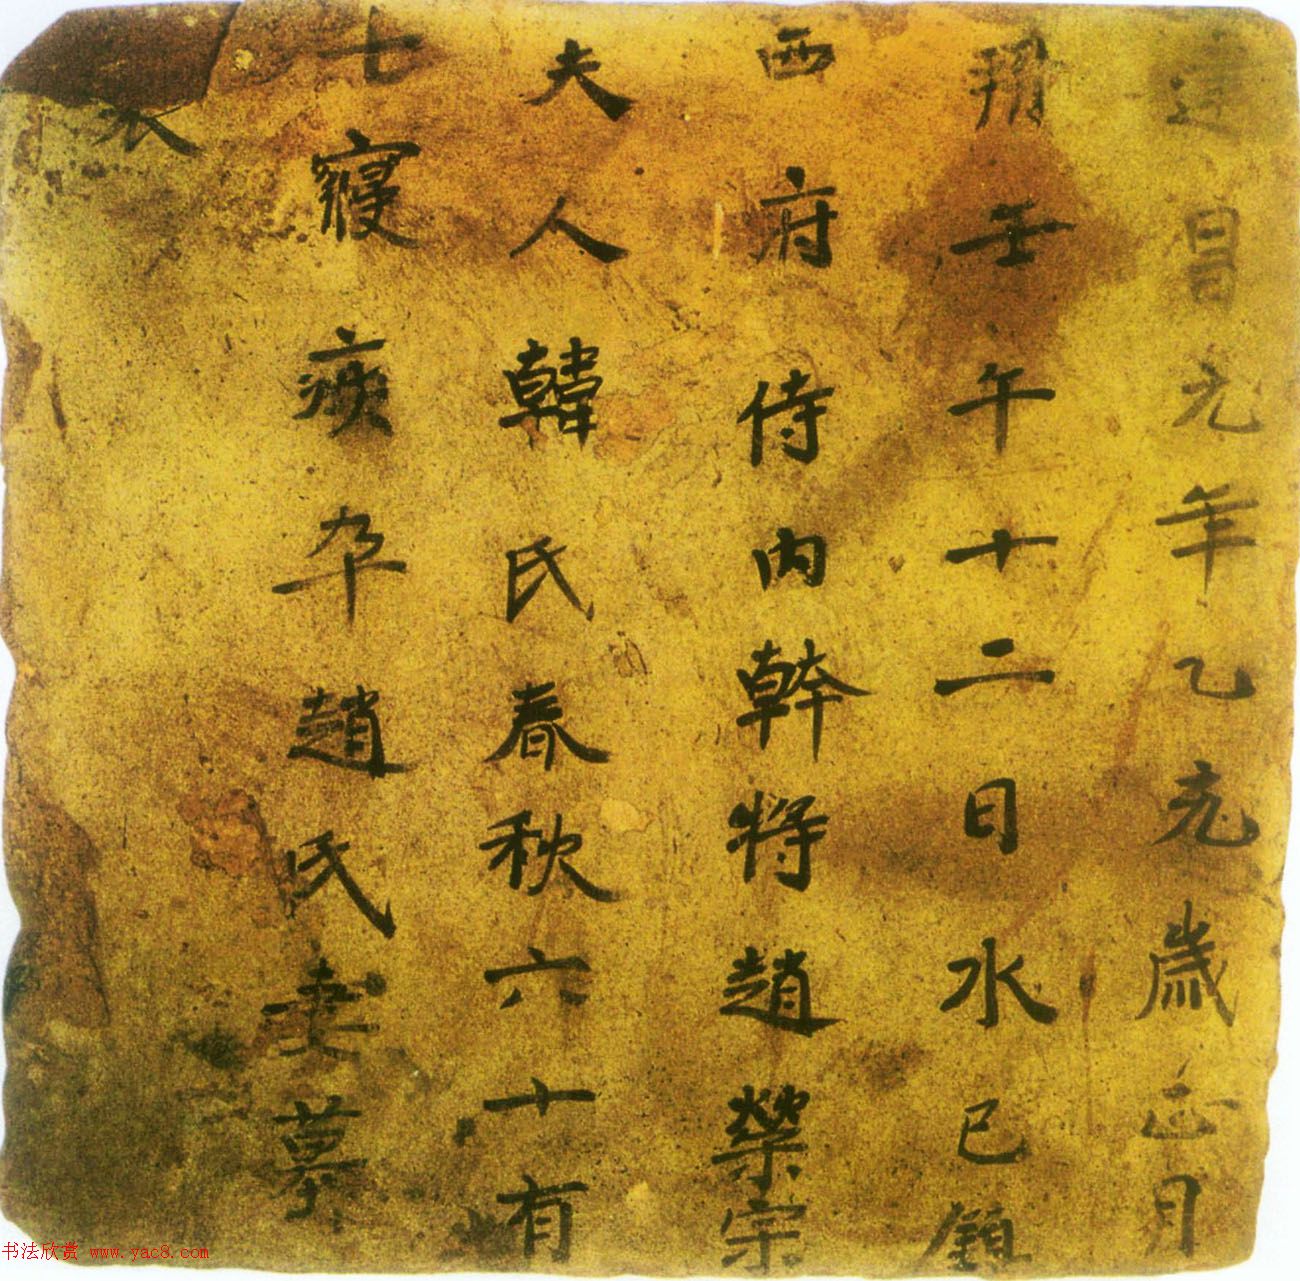 建昌元年乙亥歲正月
朔壬午十二日水巳鎮
西府侍內幹將趙榮宗
夫人韓氏春秋六十有
七寢疾卒趙氏妻墓
表
书法欣赏 www.yac8.com